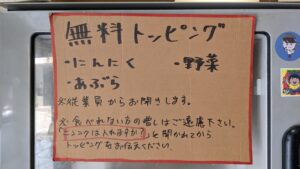 無料トッピング
・にんにく ・野菜
・あぶら
※従業員からお聞きします。
※食べれない方の増しはご遠慮下さい。
「ニンニクは入れますか?」と聞かれてから
トッピングをお伝えください